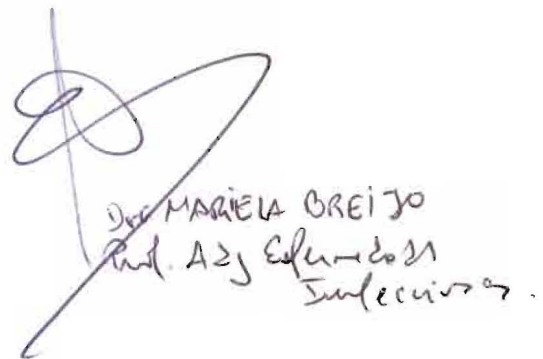 Dra MARIELA BREIJO
Prof. Adj Enfermedades
Infecciosas.